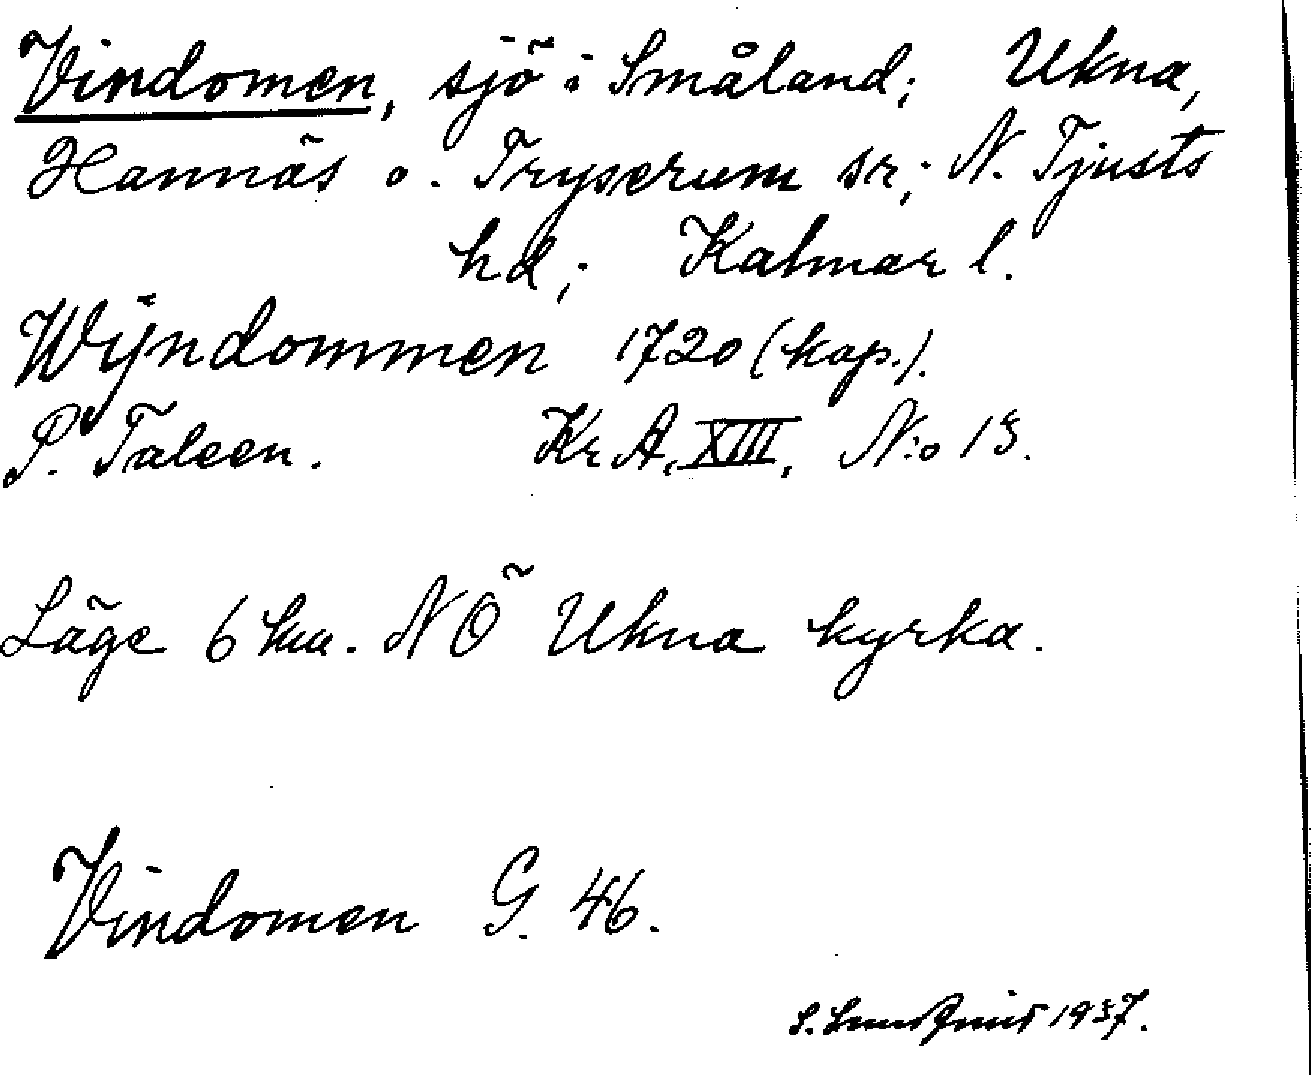 Vindomen, sjö i Småland; Ukna,
Hannäs o. Tryserum sr; N. Tjusts
hd; Kalmar l.
Wijndommen 1720 (kop.).
P. Taleen. Kr A, XIII, N:o 13.
Läge 6 km. NÖ Ukna kyrka.
Vindomen G. 46.
S. 1937.